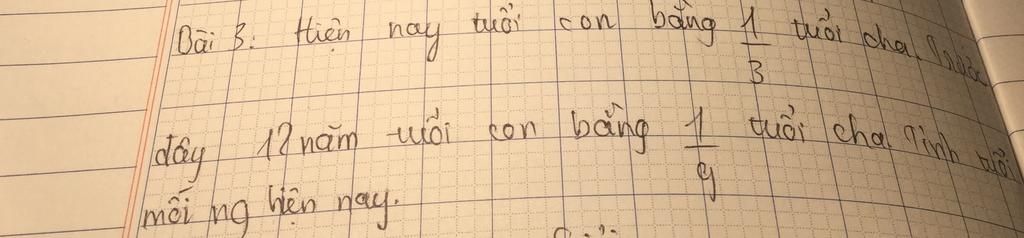 Bài 3: Hiện nay tuổi con bằng 1/3 tuổi cha. Trước
đây 12 năm tuổi con bằng 1/9 tuổi cha. Tính tuổi
mỗi ng hiện nay.